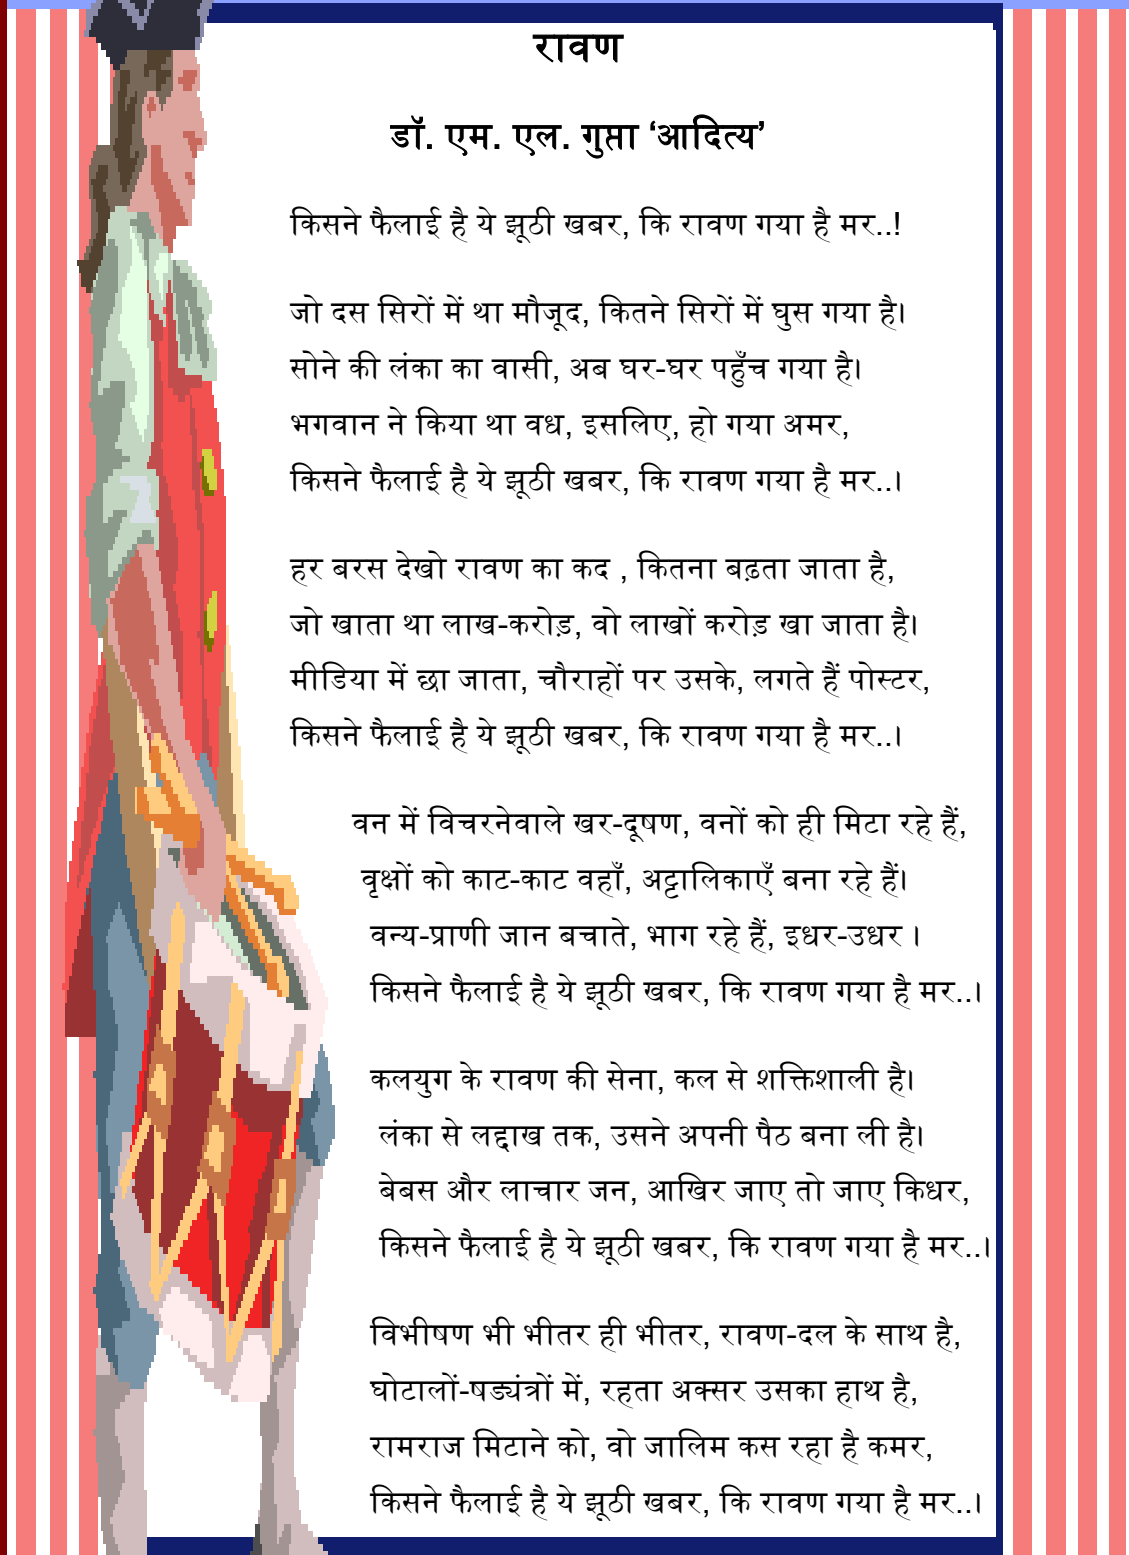 रावण
डॉ. एम. एल. गुप्ता ‘आदित्य’
किसने फैलाई है ये झूठी खबर, कि रावण गया है मर..!
जो दस सिरों में था मौजूद, कितने सिरों में घुस गया है।
सोने की लंका का वासी, अब घर-घर पहुँच गया है।
भगवान ने किया था वध, इसलिए, हो गया अमर,
किसने फैलाई है ये झूठी खबर, कि रावण गया है मर..।
हर बरस देखो रावण का कद , कितना बढ़ता जाता है,
जो खाता था लाख-करोड़, वो लाखों करोड़ खा जाता है।
मीडिया में छा जाता, चौराहों पर उसके, लगते हैं पोस्टर,
किसने फैलाई है ये झूठी खबर, कि रावण गया है मर..।
वन में विचरनेवाले खर-दूषण, वनों को ही मिटा रहे हैं,
वृक्षों को काट-काट वहाँ, अट्टालिकाएँ बना रहे हैं।
वन्य-प्राणी जान बचाते, भाग रहे हैं, इधर-उधर ।
किसने फैलाई है ये झूठी खबर, कि रावण गया है मर..।
कलयुग के रावण की सेना, कल से शक्तिशाली है।
लंका से लद्दाख तक, उसने अपनी पैठ बना ली है।
बेबस और लाचार जन, आखिर जाए तो जाए किधर,
किसने फैलाई है ये झूठी खबर, कि रावण गया है मर..।
विभीषण भी भीतर ही भीतर, रावण-दल के साथ है,
घोटालों-षड्यंत्रों में, रहता अक्सर उसका हाथ है,
रामराज मिटाने को, वो जालिम कस रहा है कमर,
किसने फैलाई है ये झूठी खबर, कि रावण गया है मर..।